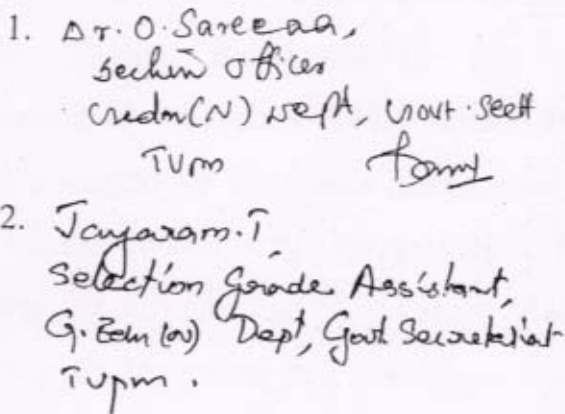 1. Dr. O. Sareena,
Section Officer
G.Edn(N) Dept, Govt. Sectt
TVPM
2. Jayaram. T,
Selection Grade Assistant,
G. Edn (N) Dept, Govt Secretariat
TVPM.